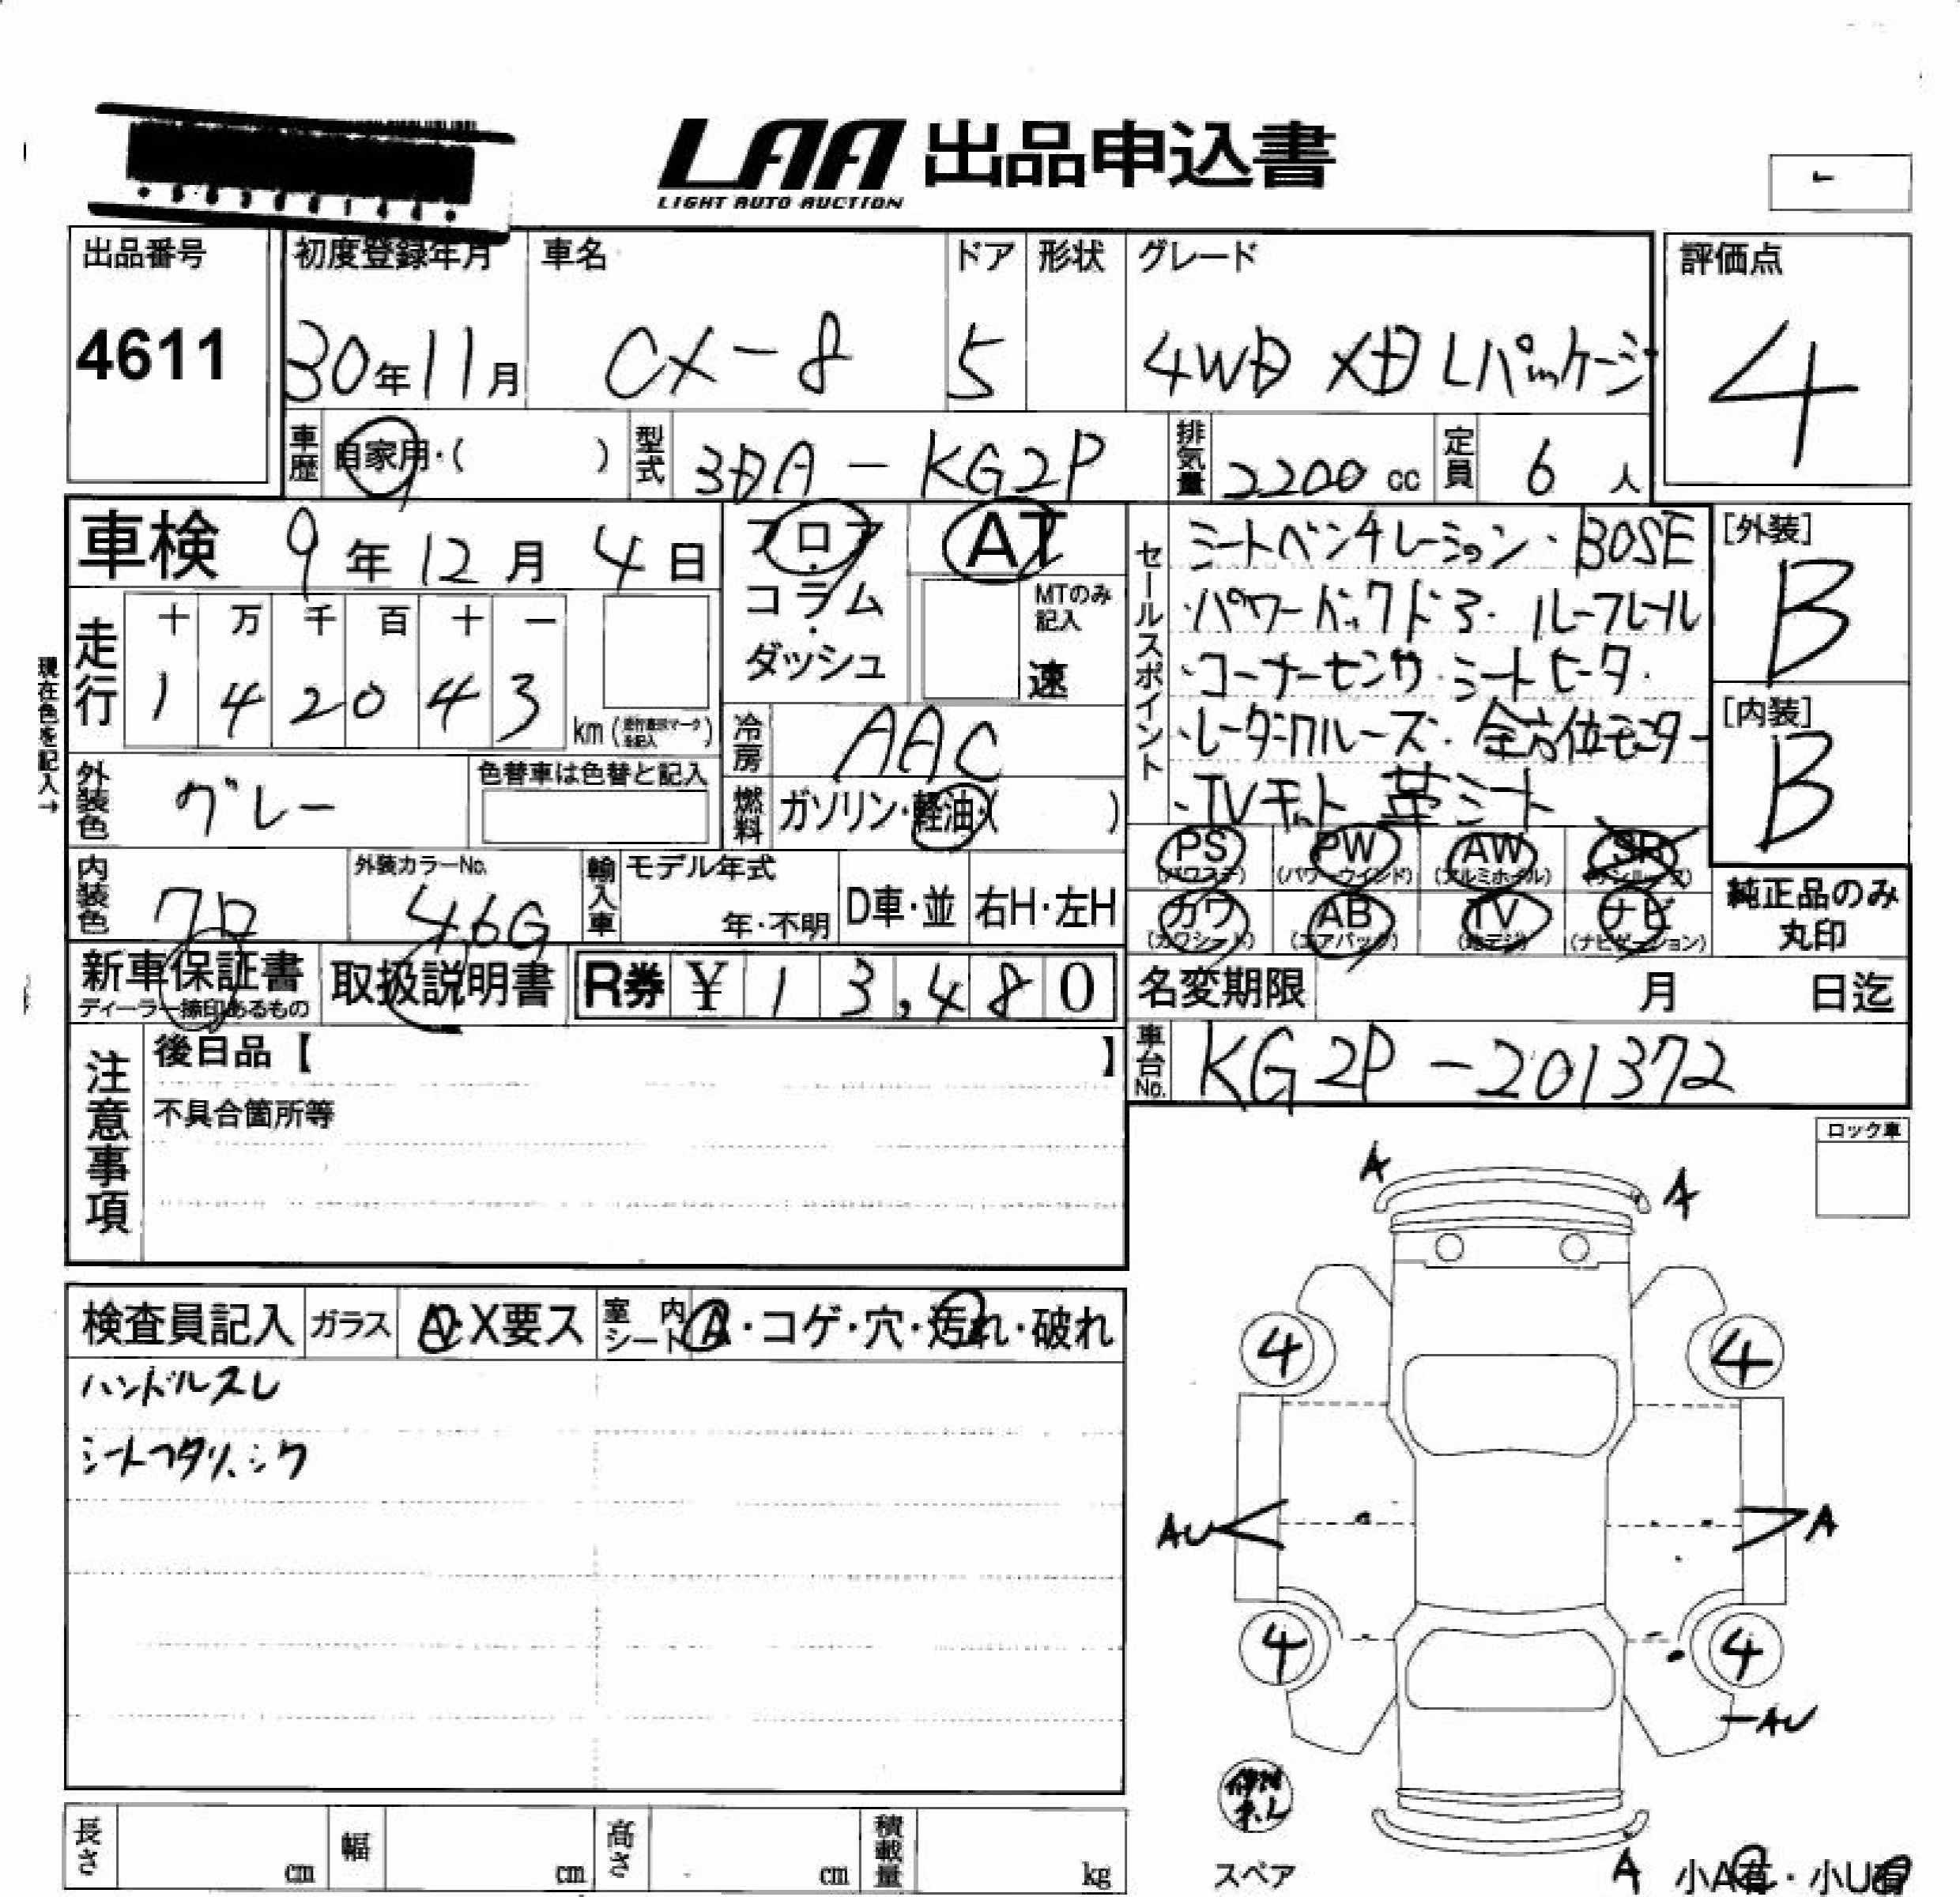 LAA 出品申込書
LIGHT AUTO AUCTION
出品番号 初度登録年月 車名 ドア 形状 グレード 評価点
4611 30年11月 CX-8 5 4WD XD Lパッケージ 4
車歴 自家用・( ) 型式 3DA-KG2P 排気量 2200cc 定員 6人
車検 9年12月4日 フロア・コラム・ダッシュ AT
MTのみ記入 速
走行 十 万 千 百 十 一
1 4 2 0 4 3 km
現在色を記入→
外装色 グレー 色替車は色替と記入
冷房 AAC
燃料 ガソリン・軽油・( )
セールスポイント
シートベンチレーション・BOSE
・パワーバックドア・ルーフレール
・コーナーセンサ・シートヒータ・
・レーダークルーズ・全方位モニター
・TVキット 革シート
[外装] B
[内装] B
内装色 クロ 外装カラーNo. 46G 輸入車 モデル年式 年・不明 D車・並 右H・左H
PS (パワステ) PW (パワーウインド) AW (アルミホイル) SR (サンルーフ)
カワ (カワシート) AB (エアバック) TV (地デジ) ナビ (ナビゲーション)
純正品のみ丸印
新車保証書 ディーラー捺印あるもの 取扱説明書 R券 ¥13,480
名変期限 月 日迄
車台No. KG2P-201372
注意事項
後日品【 】
不具合箇所等
ロック車
検査員記入 ガラス A・X要ス 室内シート A・コゲ・穴・汚れ・破れ
ハンドルスレ
A A
4 4
AU A
4 4
AU
スペア A 小A有・小U有
長さ cm 幅 cm 高さ cm 積載量 kg